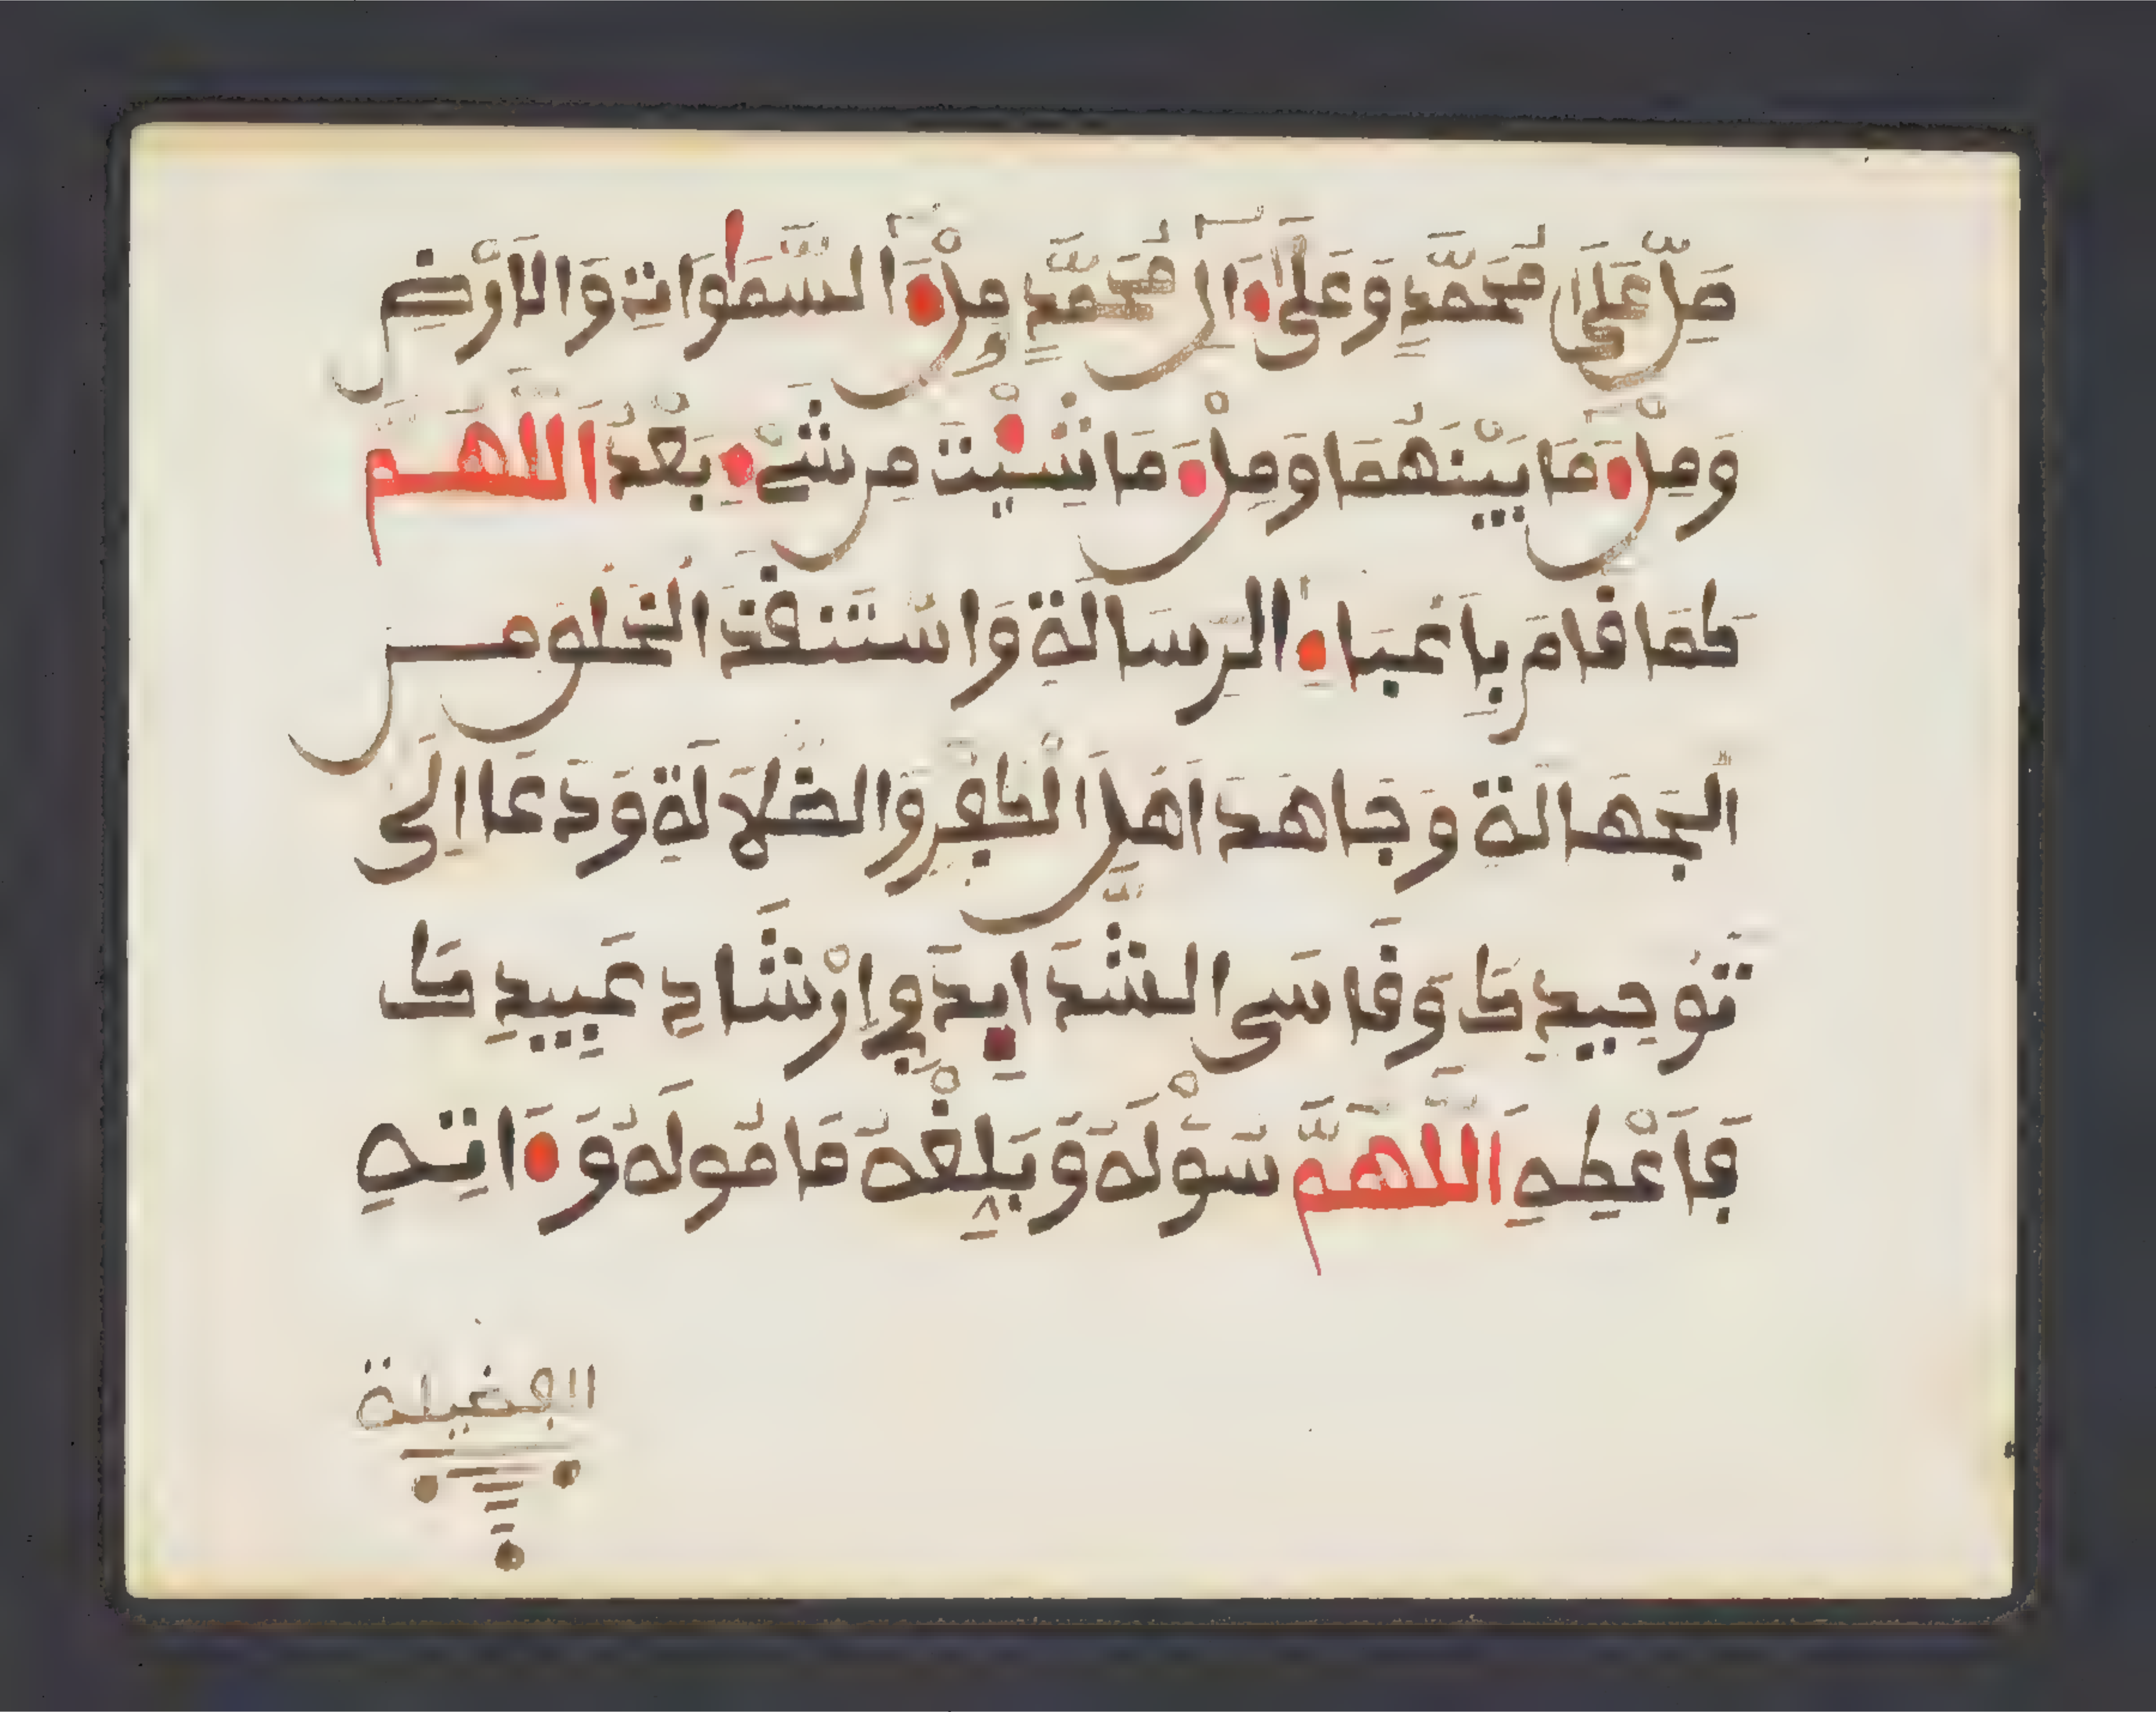 صَلِّ عَلَىٰ مُحَمَّدٍ وَعَلَىٰٓ ءَالِ مُحَمَّدٍ مِلْءَ السَّمَٰوَاتِ وَالَارْضِ
وَمِلْءَ مَا بَيْنَهُمَا وَمِلْءَ مَا شِئْتَ مِن شَےْءٍ بَعْدُ اَللَّهُمَّ
كَمَا قَامَ بِأَعْبَاءِ الرِّسَالَةِ وَاسْتَنقَذَ الْخَلْقَ مِنَ
الْجَهَالَةِ وَجَاهَدَ اَهْلَ الْكُفْرِ وَالضَّلَالَةِ وَدَعَا اِلَى
تَوْحِيدِكَ وَقَاسَى الشَّدَايِدَ فِي اِرْشَادِ عَبِيدِكَ
فَأَعْطِهِ اللَّهُمَّ سُؤْلَهُ وَبَلِّغْهُ مَامُولَهُ وَءَاتِهِ
الفضيلة